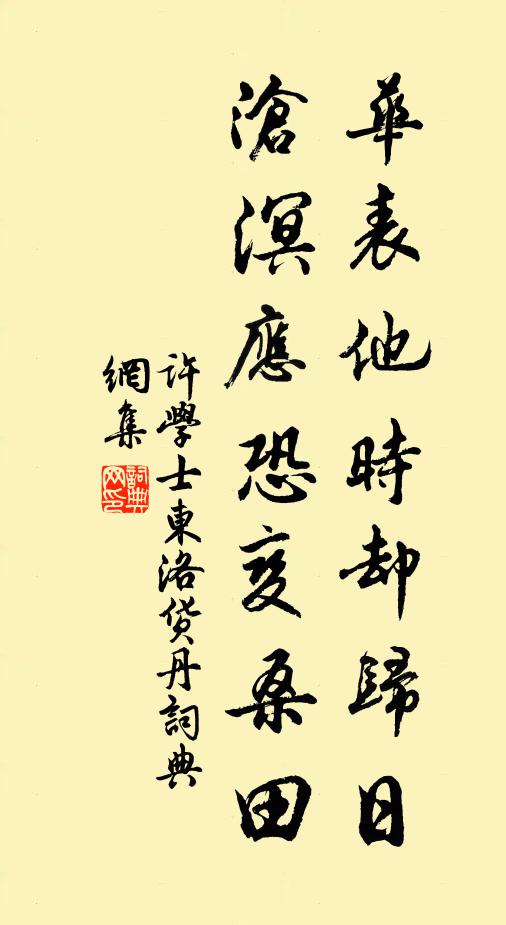 華表他時却歸日
滄溟應恐变桑田
許學士東洛貨丹詞典
網集
詞典網印